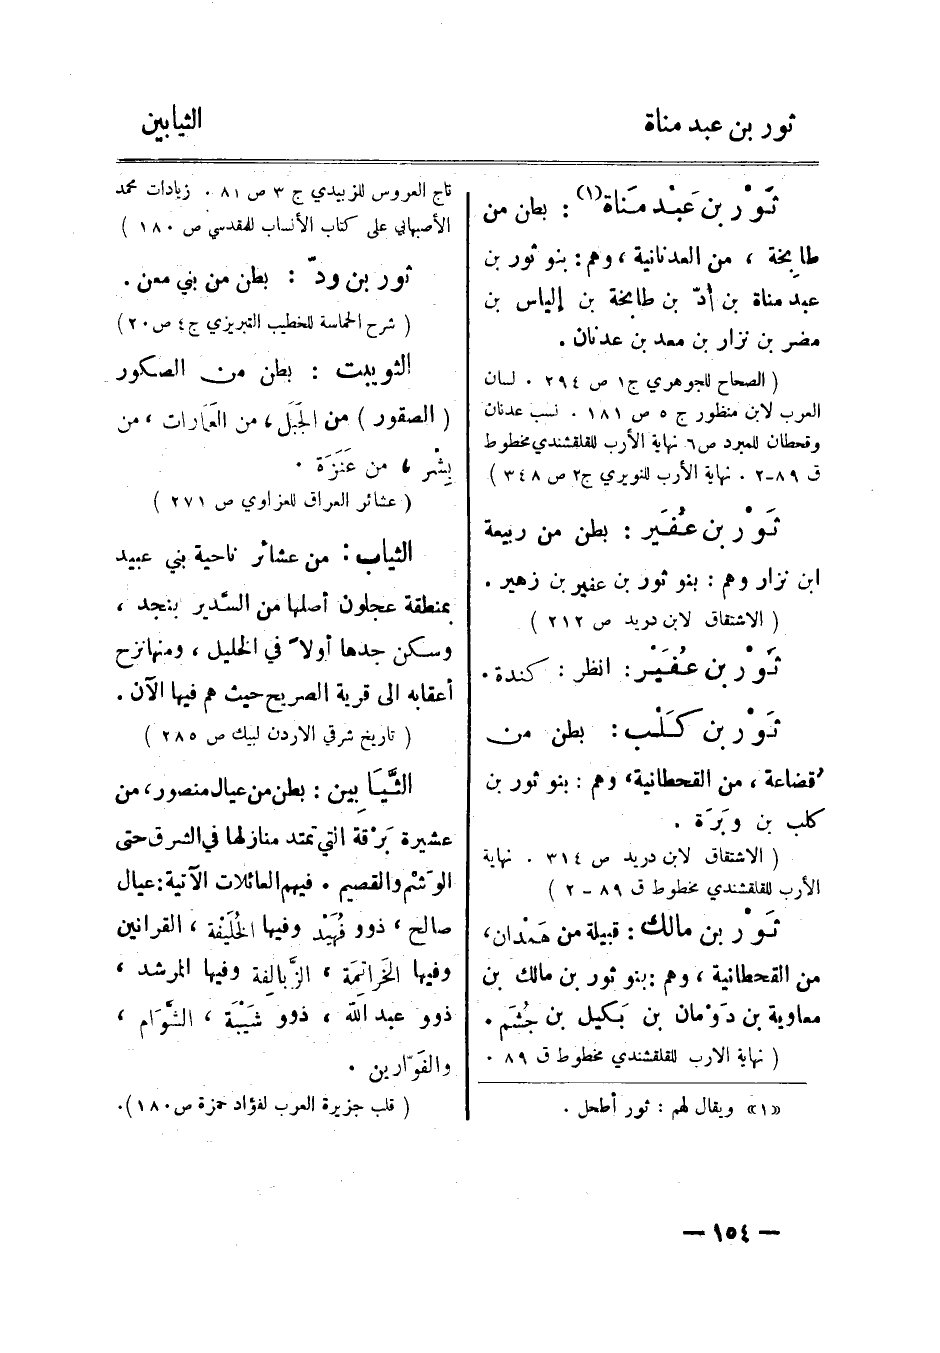 ثور بن عبد مناة
الثيابين
ثَوْر بن عَبْد مَنَاة(١) : بطن من
طابِخة ، من العدنانية ، وهم : بنو ثور بن
عبد مناة بن أُدّ بن طابخة بن إلياس بن
مضر بن نزار بن معد بن عدنان .
( الصحاح للجوهري ج١ ص ٢٩٤ . لسان
العرب لابن منظور ج ٥ ص ١٨١ . نسب عدنان
وقحطان للمبرد ص٦ نهاية الأرب للقلقشندي مخطوط
ق ٨٩-٢ . نهاية الأرب للنويري ج٢ ص ٣٤٨ )
ثَوْر بن عُفَير : بطن من ربيعة
ابن نزار وهم : بنو ثور بن عفير بن زهير .
( الاشتقاق لابن دريد ص ٢١٢ )
ثَوْر بن عُفَيْر : انظر : كندة .
ثَوْر بن كَلْب : بطن من
قُضاعة ، من القحطانية ، وهم : بنو ثور بن
كلب بن وَبَرَة .
( الاشتقاق لابن دريد ص ٣١٤ . نهاية
الأرب للقلقشندي مخطوط ق ٨٩ - ٢ )
ثَوْر بن مالك : قبيلة من هَمْدان ،
من القحطانية ، وهم : بنو ثور بن مالك بن
معاوية بن دَوْمان بن بَكيل بن جُشَم .
( نهاية الارب للقلقشندي مخطوط ق ٨٩ .
«١» ويقال لهم : ثور أطحل .
تاج العروس للزبيدي ج ٣ ص ٨١ . زيادات محمد
الأصبهاني على كتاب الأنساب للمقدسي ص ١٨٠ )
ثور بن ودّ : بطن من بني معن .
( شرح الحماسة للخطيب التبريزي ج٤ ص ٢٠ )
الثويبت : بطن من الصكور
( الصقور ) من الجَبَل ، من العَمارات ، من
بِشْر ، من عَنَزَة .
( عشائر العراق للعزاوي ص ٢٧١ )
الثياب : من عشائر ناحية بني عبيد
بمنطقة عجلون أصلها من السَّدير بنجد ،
وسكن جدها أولاً في الخليل ، ومنها نزح
أعقابه الى قرية الصريح حيث هم فيها الآن .
( تاريخ شرقي الاردن لبيك ص ٢٨٥ )
الثَّيَابِين : بطن من عيال منصور ، من
عشيرة بَرْقة التي تمتد منازلها في الشرق حتى
الوَشْم والقصيم . فيهم العائلات الآتية : عيال
صالح ، ذوو فُهَيْد وفيها الخُلَيفة ، القرانين
وفيها الخَرانِمَة ، الزَّبالِفة وفيها المرشد ،
ذوو عبد الله ، ذوو شَيْبَة ، الشَّوَام ،
والفَوّارين .
( قلب جزيرة العرب لفؤاد حمزة ص ١٨٠ ) .
— ١٥٤ —